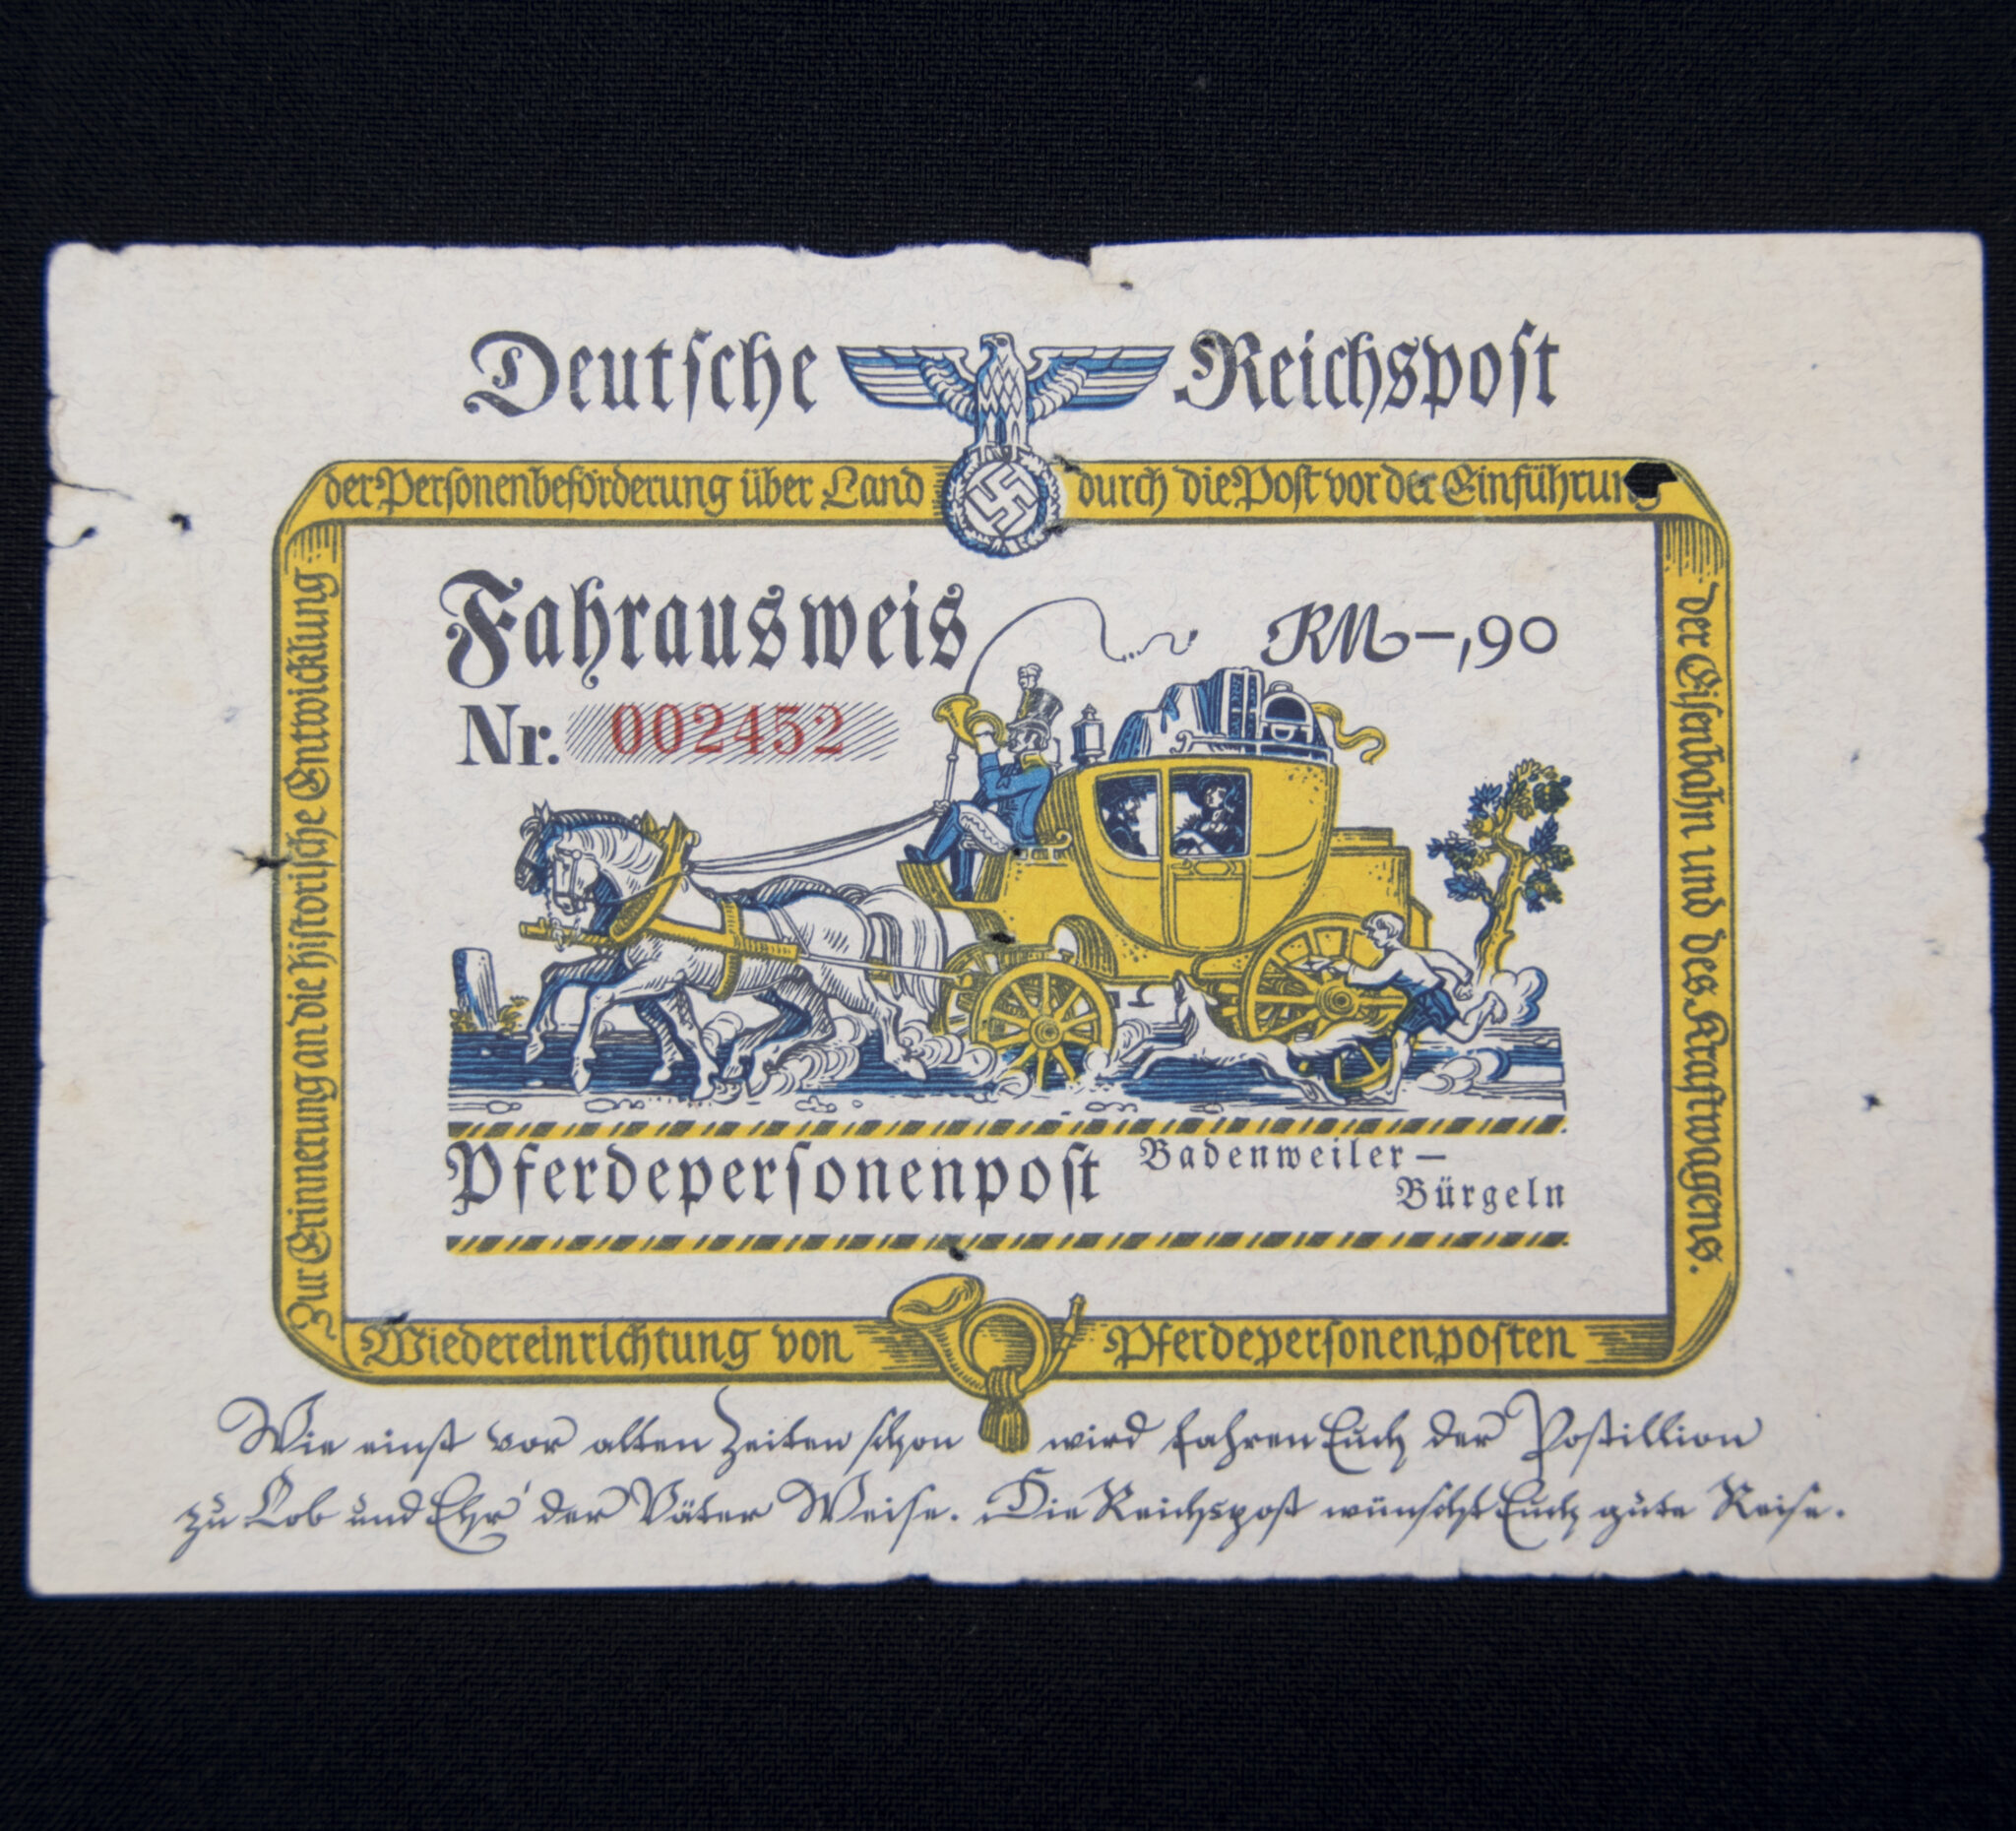 Deutsche Reichspost
Zur Erinnerung an die historische Entwicklung
der Personenbeförderung über Land durch die Post vor der Einführung
der Eisenbahn und des Kraftwagens.
Fahrausweis RM –,90
Nr. 002452
Pferdepersonenpost Badenweiler–
Bürgeln
Wiedereinrichtung von Pferdepersonenposten
Wie einst vor alten Zeiten schon wird fahren Euch der Postillion
zu Lob und Ehr' der Väter Weise. Die Reichspost wünscht Euch gute Reise.